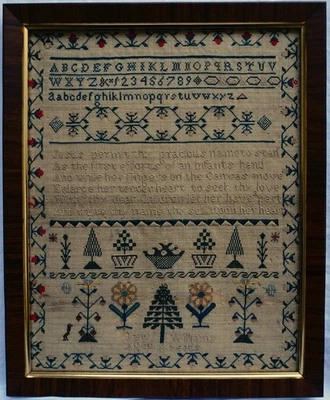 ABCDEFGHIKLMNOPQRSTUV
WXYZ&123456789
aabcdefghiklmnopqrstuvwxyz
Jesus permit thy gracious name to stan
As the first efforts of an infants hand
And while her fingers on the Canvas move
her tender heart to seek thy love
With thy dear Children let her have part
write thy name thy self upon her hear
Williams